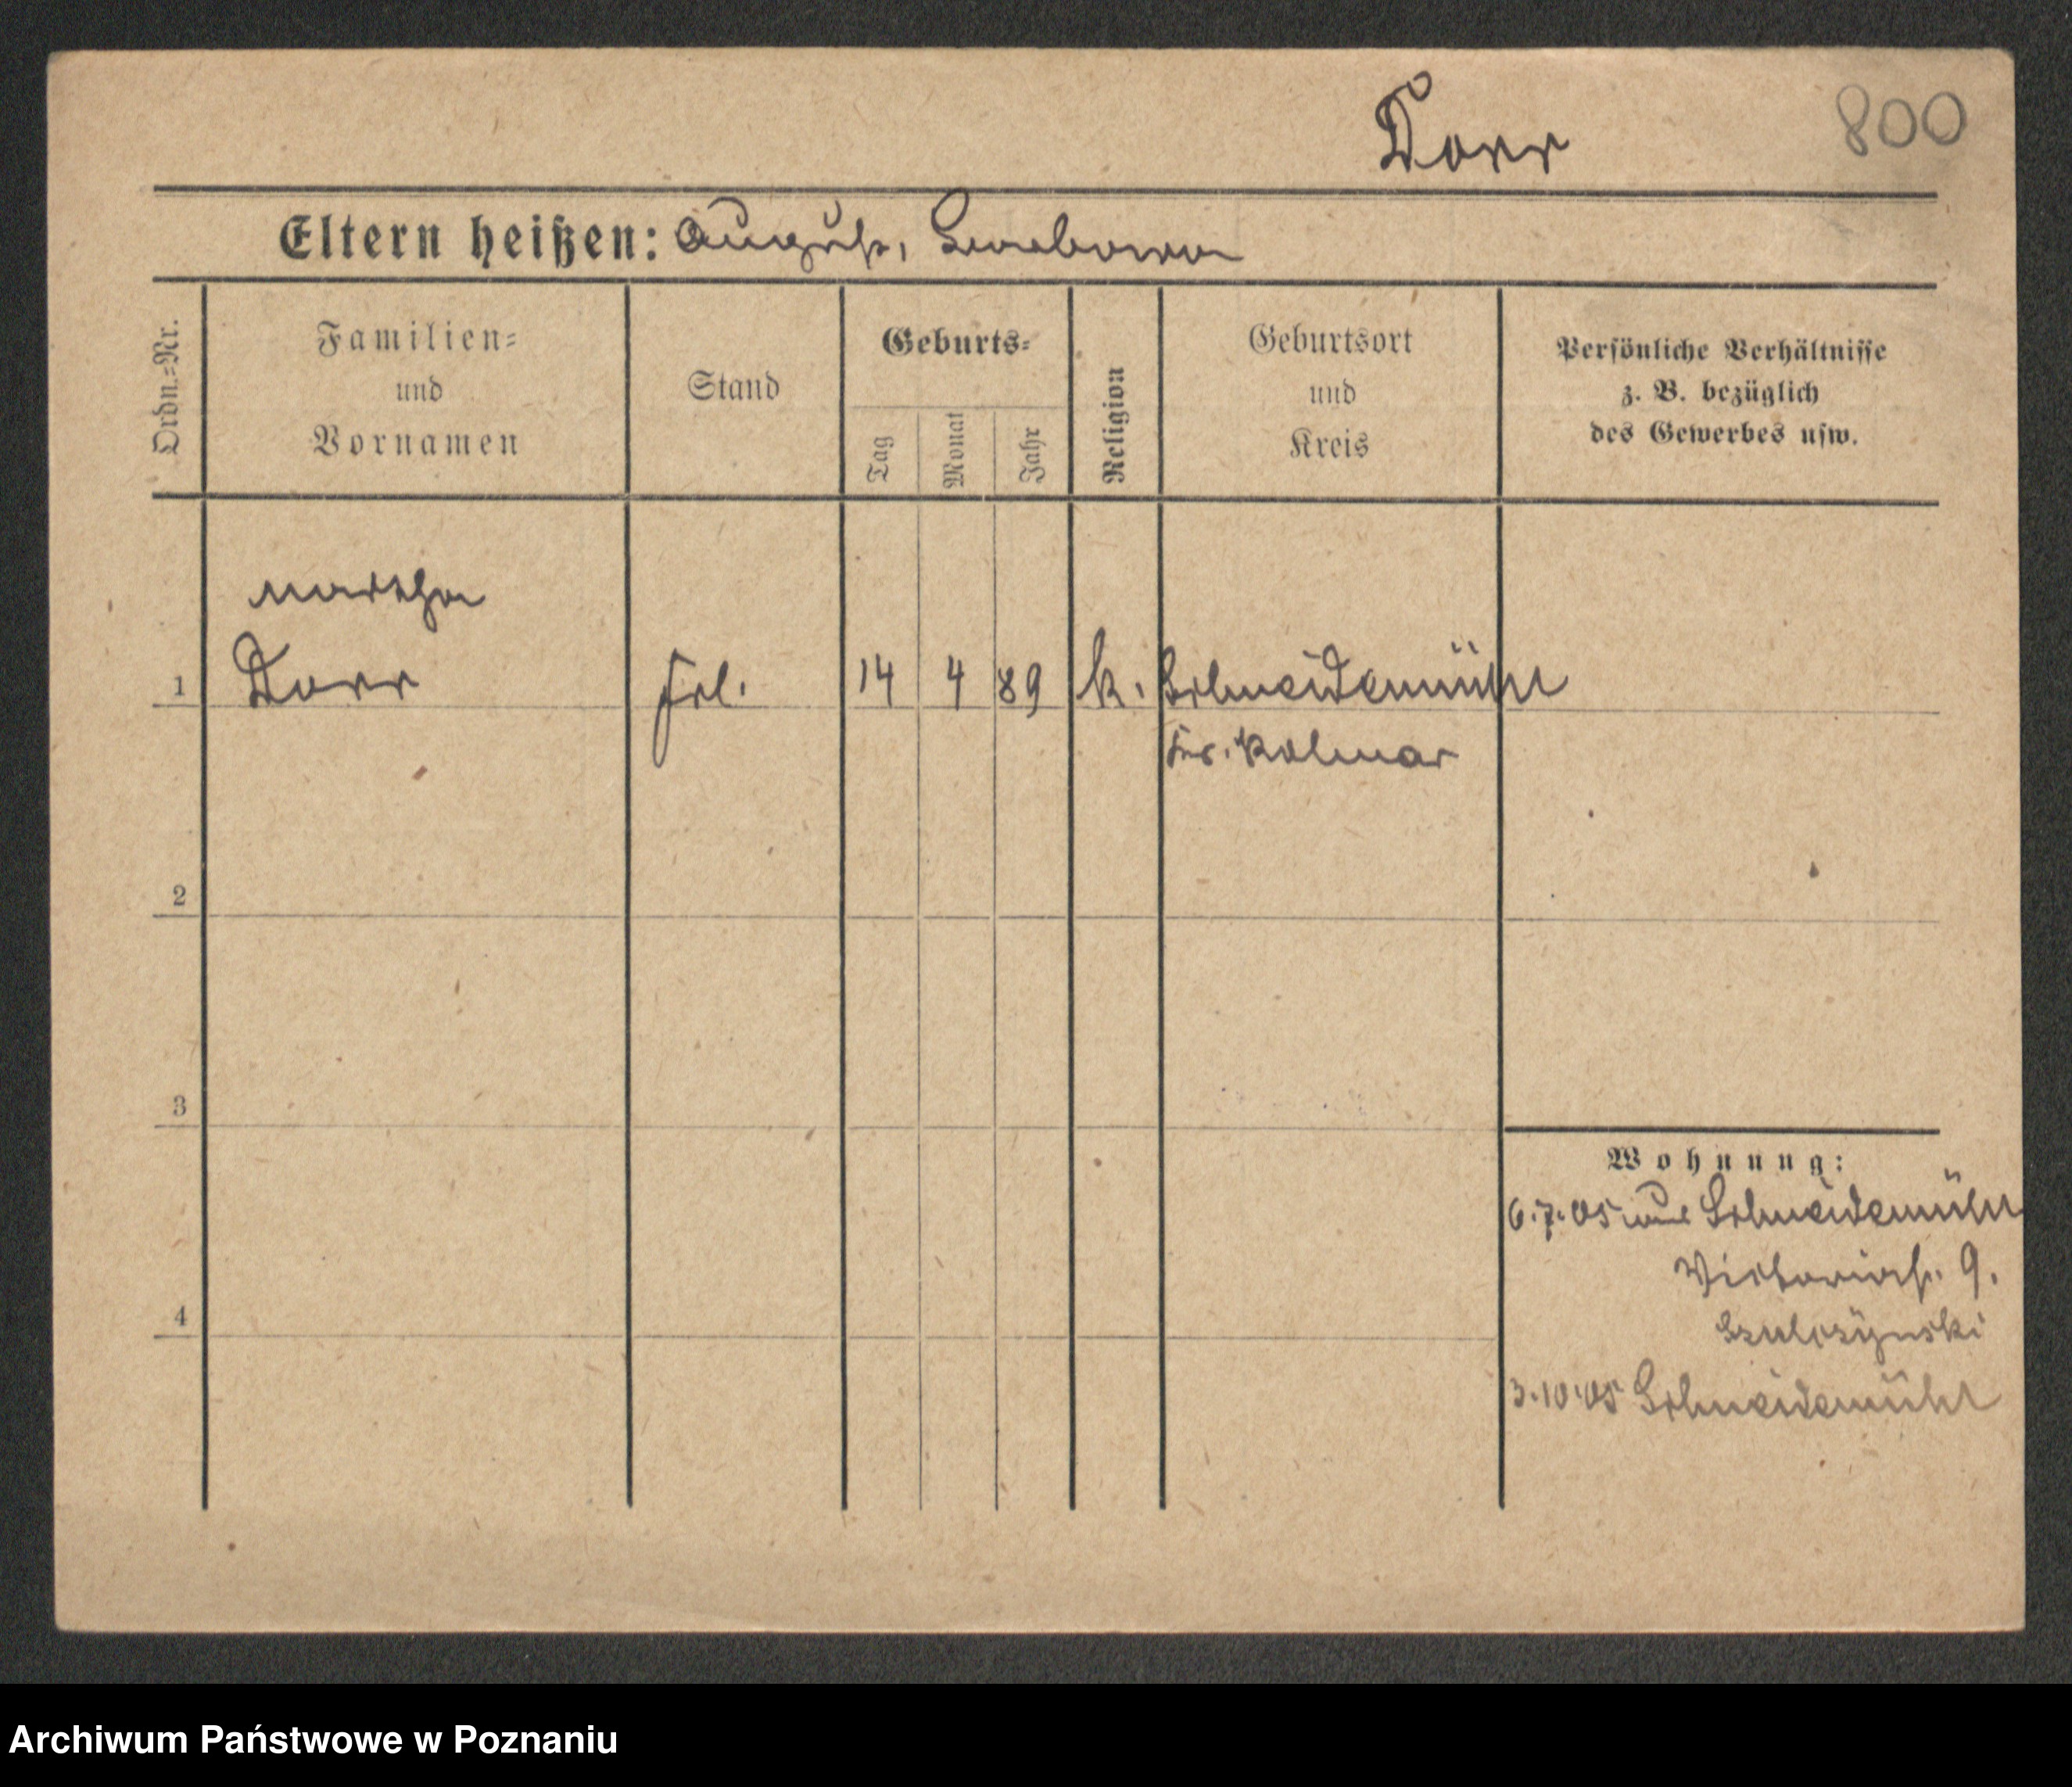 Dorr 800
Eltern heißen: August, Barbara
Ordn.-Nr.
Familien-
und
Vornamen
Stand
Geburts-
Tag
Monat
Jahr
Religion
Geburtsort
und
Kreis
Persönliche Verhältnisse
z. B. bezüglich
des Gewerbes usw.
Martha
1 Dorr Frl. 14 4 89 k. Schneidemühl
Kr. Kolmar
2
3
4
Wohnung:
6.7.05 aus Schneidemühl
Victoriast. 9.
Szulczynski
3.10.05 Schneidemühl
Archiwum Państwowe w Poznaniu